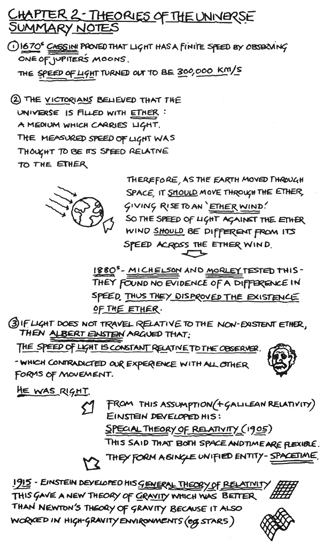 CHAPTER 2 - THEORIES OF THE UNIVERSE
SUMMARY NOTES
① 1670s CASSINI PROVED THAT LIGHT HAS A FINITE SPEED BY OBSERVING
ONE OF JUPITER'S MOONS.
THE SPEED OF LIGHT TURNED OUT TO BE 300,000 KM/S
② THE VICTORIANS BELIEVED THAT THE
UNIVERSE IS FILLED WITH ETHER:
A MEDIUM WHICH CARRIES LIGHT.
THE MEASURED SPEED OF LIGHT WAS
THOUGHT TO BE ITS SPEED RELATIVE
TO THE ETHER
THEREFORE, AS THE EARTH MOVED THROUGH
SPACE, IT SHOULD MOVE THROUGH THE ETHER,
GIVING RISE TO AN 'ETHER WIND'.
SO THE SPEED OF LIGHT AGAINST THE ETHER
WIND SHOULD BE DIFFERENT FROM ITS
SPEED ACROSS THE ETHER WIND.
1880s - MICHELSON AND MORLEY TESTED THIS -
THEY FOUND NO EVIDENCE OF A DIFFERENCE IN
SPEED, THUS THEY DISPROVED THE EXISTENCE
OF THE ETHER.
③ IF LIGHT DOES NOT TRAVEL RELATIVE TO THE NON-EXISTENT ETHER,
THEN ALBERT EINSTEIN ARGUED THAT:
THE SPEED OF LIGHT IS CONSTANT RELATIVE TO THE OBSERVER.
- WHICH CONTRADICTED OUR EXPERIENCE WITH ALL OTHER
FORMS OF MOVEMENT.
HE WAS RIGHT.
FROM THIS ASSUMPTION (+ GALILEAN RELATIVITY)
EINSTEIN DEVELOPED HIS:
SPECIAL THEORY OF RELATIVITY (1905)
THIS SAID THAT BOTH SPACE AND TIME ARE FLEXIBLE.
THEY FORM A SINGLE UNIFIED ENTITY - SPACETIME.
1915 - EINSTEIN DEVELOPED HIS GENERAL THEORY OF RELATIVITY
THIS GAVE A NEW THEORY OF GRAVITY WHICH WAS BETTER
THAN NEWTON'S THEORY OF GRAVITY BECAUSE IT ALSO
WORKED IN HIGH-GRAVITY ENVIRONMENTS (eg STARS)